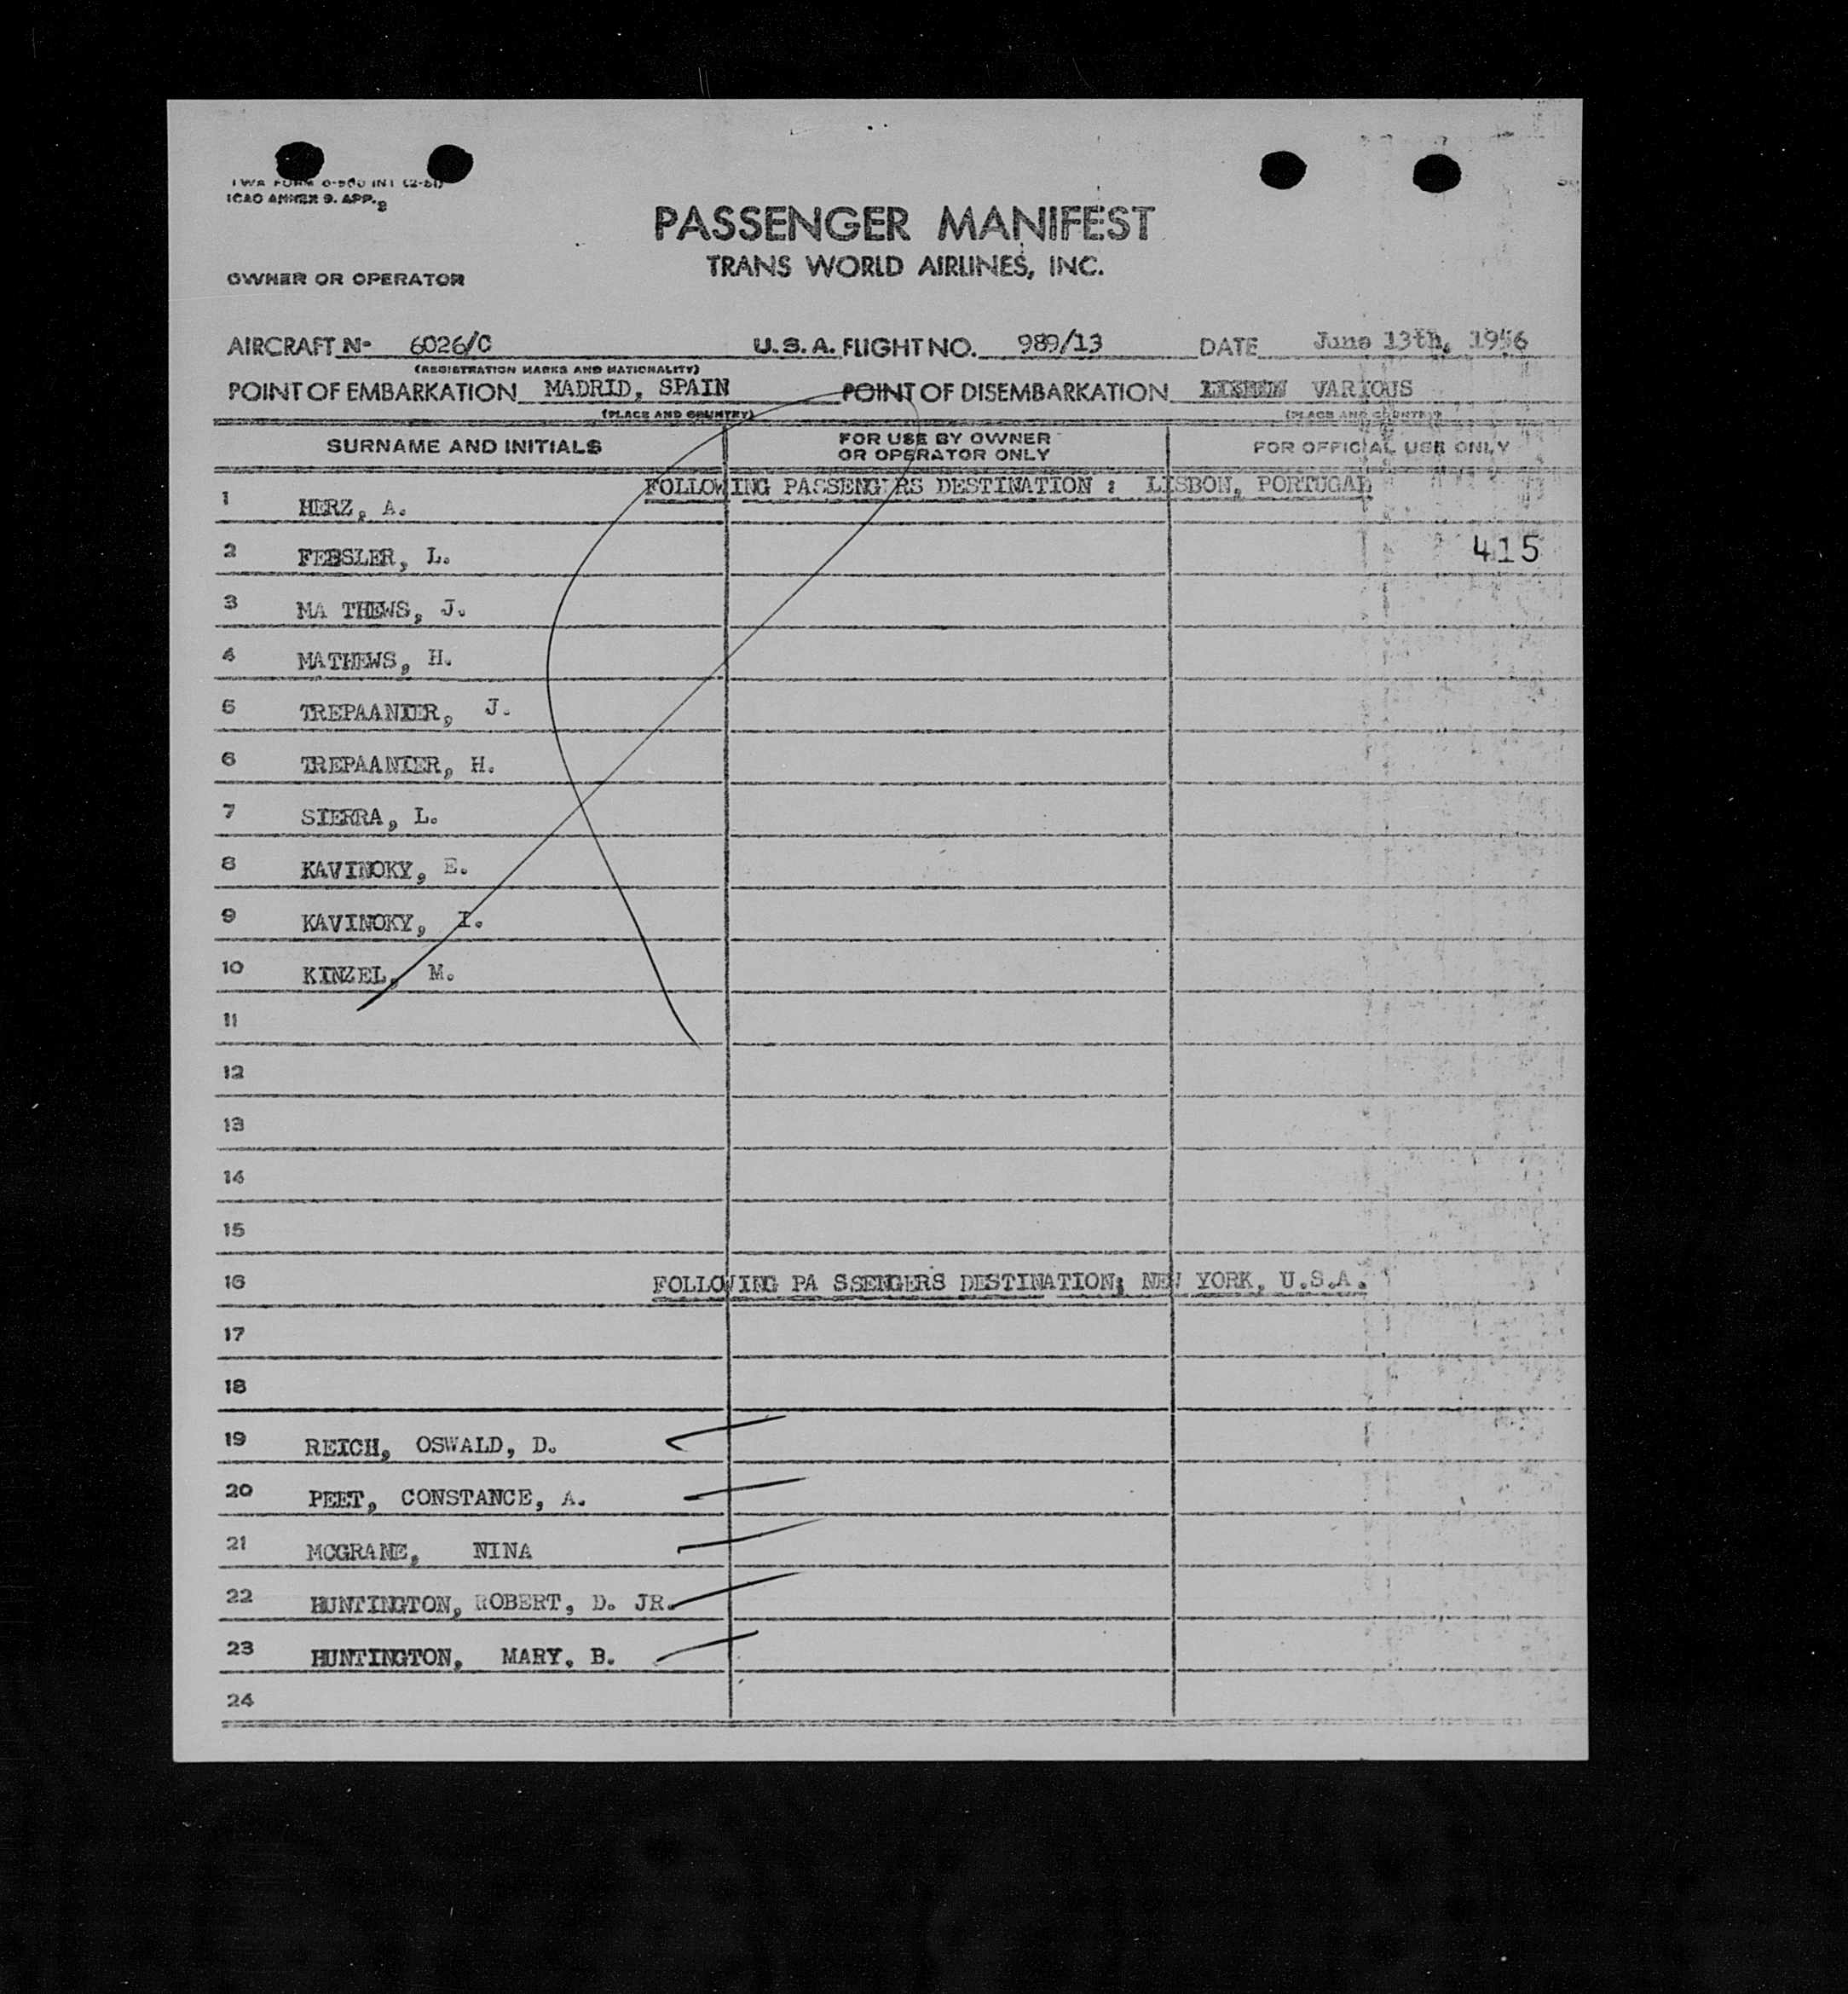 TWA FORM 0-900 INT (2-51)
ICAO ANNEX 9. APP. 3
PASSENGER MANIFEST
TRANS WORLD AIRLINES, INC.
OWNER OR OPERATOR
AIRCRAFT N- 6026/C U.S.A. FLIGHT NO. 989/13 DATE June 13th, 1956
(REGISTRATION MARKS AND NATIONALITY)
POINT OF EMBARKATION MADRID, SPAIN POINT OF DISEMBARKATION VARIOUS
(PLACE AND COUNTRY) (PLACE AND COUNTRY)
SURNAME AND INITIALS FOR USE BY OWNER OR OPERATOR ONLY FOR OFFICIAL USE ONLY
FOLLOWING PASSENGERS DESTINATION : LISBON, PORTUGAL
1 HERZ, A.
2 FEBSLER, L. 415
3 MA THEWS, J.
4 MATHEWS, H.
5 TREPAANIER, J.
6 TREPAANIER, H.
7 SIERRA, L.
8 KAVINOKY, E.
9 KAVINOKY, I.
10 KINZEL, M.
11
12
13
14
15
16 FOLLOWING PA SSENGERS DESTINATION; NEW YORK, U.S.A.
17
18
19 REICH, OSWALD, D.
20 PEET, CONSTANCE, A.
21 MCGRANE, NINA
22 HUNTINGTON, ROBERT, D. JR.
23 HUNTINGTON, MARY, B.
24